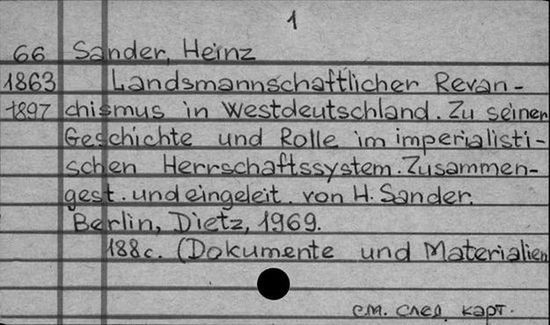 1
66 Sander, Heinz
1863 Landsmannschaftlicher Revan-
1897 chismus in Westdeutschland. Zu seiner
Geschichte und Rolle im imperialisti-
schen Herrschaftssystem. Zusammen-
gest. und eingeleit. von H. Sander.
Berlin, Dietz, 1969.
188 с. (Dokumente und Materialien
см. след. карт.